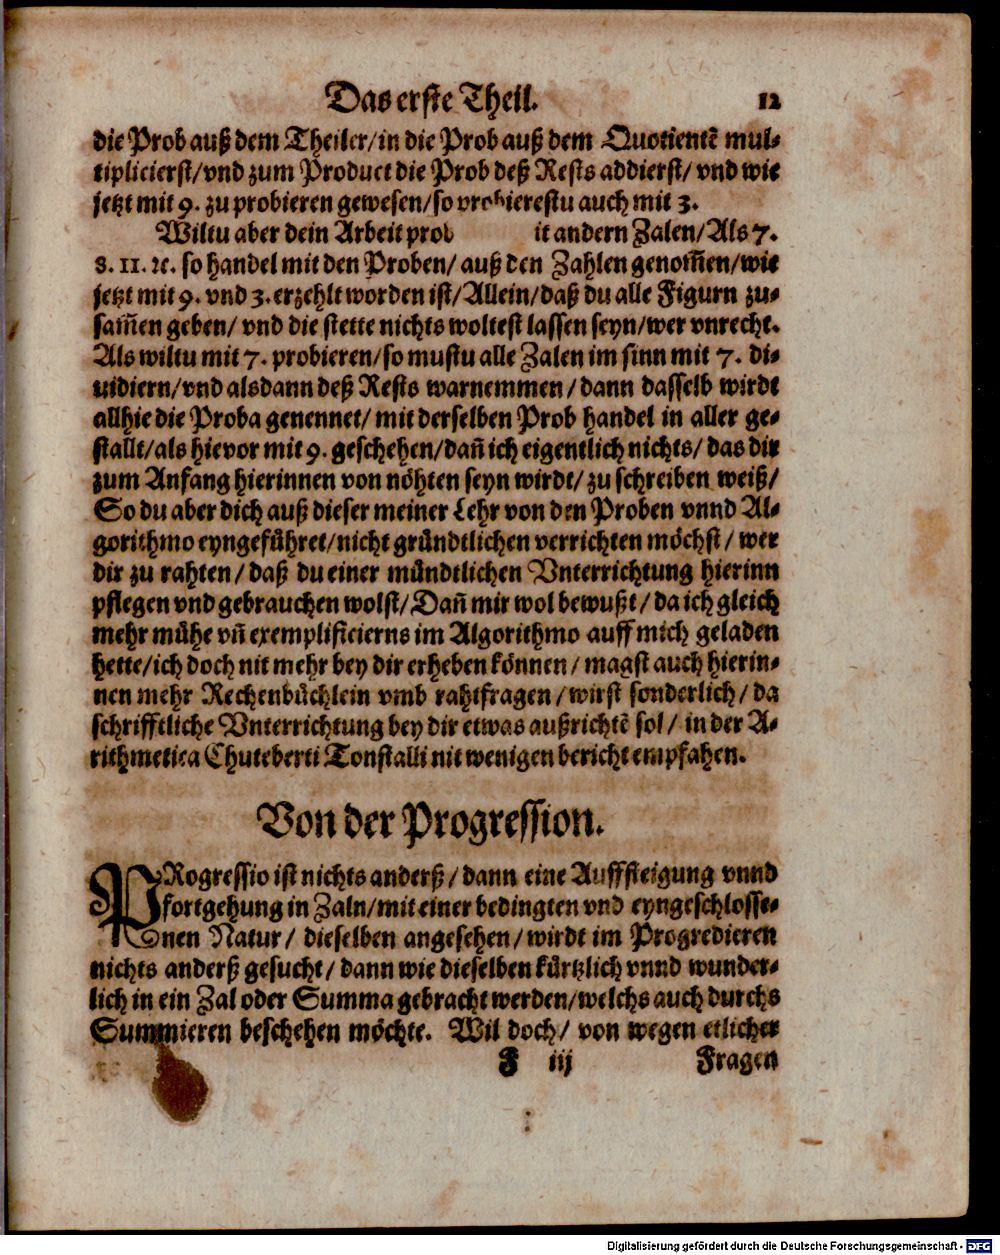 Das erste Theil. 12
die Prob auß dem Theiler/in die Prob auß dem Quotientẽ mul-
tiplicierst/vnd zum Product die Prob deß Rests addierst/ vnd wie
jetzt mit 9. zu probieren gewesen/so probierestu auch mit 3.
Wiltu aber dein Arbeit prob it andern Zalen/Als 7.
8. 11. ꝛc. so handel mit den Proben/ auß den Zahlen genom̃en/wie
jetzt mit 9. vnd 3. erzehlt worden ist/Allein/daß du alle Figurn zu-
sam̃en geben/ vnd die stette nichts woltest lassen seyn/wer vnrecht.
Als wiltu mit 7. probieren/so mustu alle Zalen im sinn mit 7. di-
uidiern/vnd alsdann deß Rests warnemmen/dann dasselb wirdt
allhie die Proba genennet/ mit derselben Prob handel in aller ge-
stallt/als hievor mit 9. geschehen/dañ ich eigentlich nichts/ das dir
zum Anfang hierinnen von nöhten seyn wirdt/ zu schreiben weiß/
So du aber dich auß dieser meiner Lehr von den Proben vnnd Al-
gorithmo eyngeführet/nicht gründtlichen verrichten möchst/ wer
dir zu rahten/ daß du einer mündtlichen Vnterrichtung hierinn
pflegen vnd gebrauchen wolst/Dañ mir wol bewußt/ da ich gleich
mehr mühe vñ exemplificierns im Algorithmo auff mich geladen
hette/ich doch nit mehr bey dir erheben können/ magst auch hierin-
nen mehr Rechenbüchlein vmb rahtfragen/wirst sonderlich/ da
schrifftliche Vnterrichtung bey dir etwas außrichtẽ sol/ in der A-
rithmetica Chuteberti Tonstalli nit wenigen bericht empfahen.
Von der Progression.
PRogressio ist nichts anderß/dann eine Auffsteigung vnnd
fortgehung in Zaln/mit einer bedingten vnd eyngeschlosse-
nen Natur/ dieselben angesehen/wirdt im Progredieren
nichts anderß gesucht/ dann wie dieselben kürtzlich vnnd wunder-
lich in ein Zal oder Summa gebracht werden/welchs auch durchs
Summieren beschehen möchte. Wil doch/ von wegen etlicher
F iij Fragen
Digitalisierung gefördert durch die Deutsche Forschungsgemeinschaft - DFG